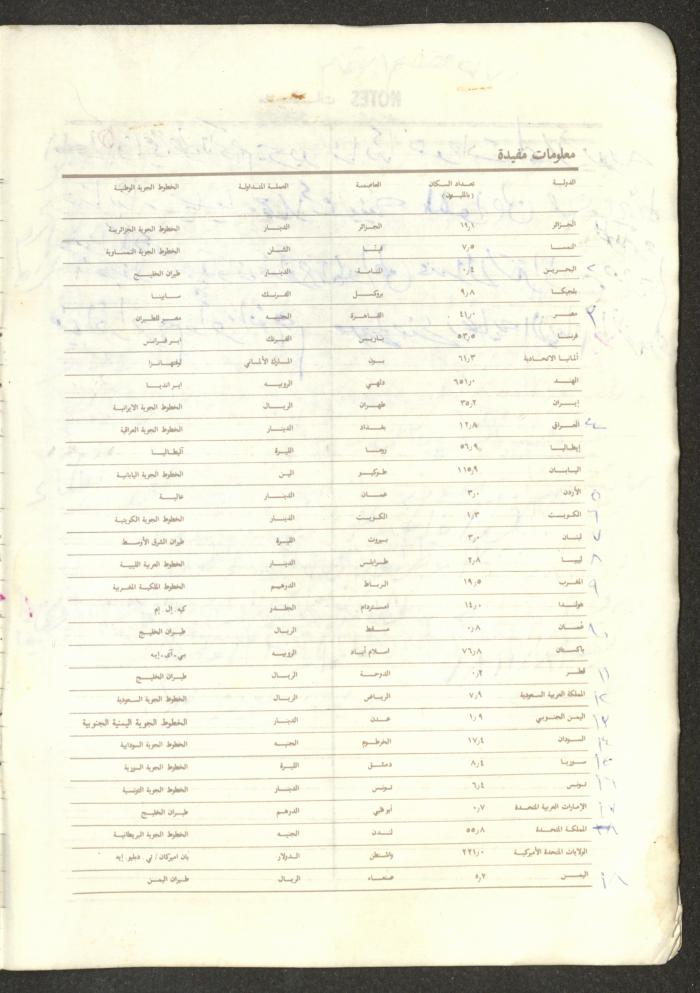 معلومات مفيدة
الدولة تعداد السكان (بالمليون) العاصمة العملة المتداولة الخطوط الجوية الوطنية
الجزائر ١٩٫١ الجزائر الدينار الخطوط الجوية الجزائرية
النمسا ٧٫٥ فيينا الشلن الخطوط الجوية النمساوية
البحرين ٠٫٤ المنامة الدينار طيران الخليج
بلجيكا ٩٫٨ بروكسل الفرنك سابينا
مصر ٤١٫٠ القاهرة الجنيه مصر للطيران
فرنسا ٥٣٫٥ باريس الفرنك اير فرانس
ألمانيا الاتحادية ٦١٫٣ بون المارك الألماني لوفتهانزا
الهند ٦٥١٫٠ دلهي الروبيه اير انديا
إيران ٣٥٫٢ طهران الريال الخطوط الجوية الايرانية
العراق ١٢٫٨ بغداد الدينار الخطوط الجوية العراقية
إيطاليا ٥٦٫٩ روما الليرة آليطاليا
اليابان ١١٥٫٩ طوكيو الين الخطوط الجوية اليابانية
الأردن ٣٫٠ عمان الدينار عالية
الكويت ١٫٣ الكويت الدينار الخطوط الجوية الكويتية
لبنان ٣٫٠ بيروت الليرة طيران الشرق الأوسط
ليبيا ٢٫٨ طرابلس الدينار الخطوط العربية الليبية
المغرب ١٩٫٥ الرباط الدرهم الخطوط الملكية المغربية
هولندا ١٤٫٠ امستردام الجلدر كيه. إل. إم
عُمان ٠٫٨ مسقط الريال طيران الخليج
باكستان ٧٦٫٨ اسلام أباد الروبيه بي.آي.إيه
قطر ٠٫٢ الدوحة الريال طيران الخليج
المملكة العربية السعودية ٧٫٩ الرياض الريال الخطوط الجوية السعودية
اليمن الجنوبي ١٫٩ عدن الدينار الخطوط الجوية اليمنية الجنوبية
السودان ١٧٫٤ الخرطوم الجنيه الخطوط الجوية السودانية
سوريا ٨٫٤ دمشق الليرة الخطوط الجوية السورية
تونس ٦٫٤ تونس الدينار الخطوط الجوية التونسية
الإمارات العربية المتحدة ٠٫٧ أبو ظبي الدرهم طيران الخليج
المملكة المتحدة ٥٥٫٨ لندن الجنيه الخطوط الجوية البريطانية
الولايات المتحدة الأميركية ٢٢١٫٠ واشنطن الدولار بان اميركان / تي. دبليو. إيه
اليمن ٥٫٧ صنعاء الريال طيران اليمن